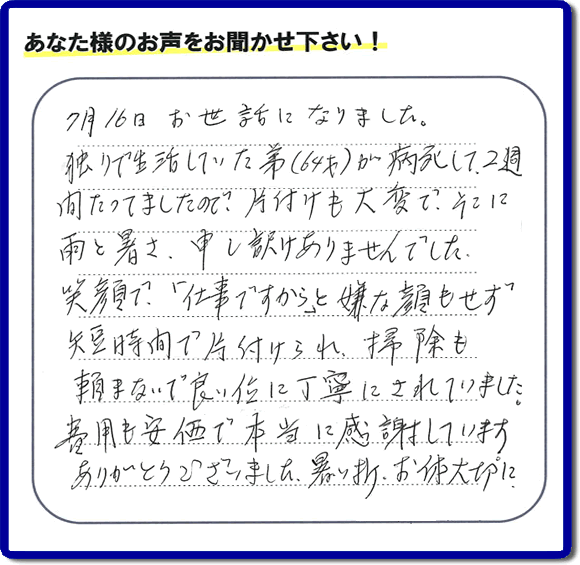 あなた様のお声をお聞かせ下さい！
7月16日 お世話になりました。
独りで生活していた弟(64才)が病死して、2週
間たってましたので、片付けも大変で、そこに
雨と暑さ、申し訳けありませんでした。
笑顔で、「仕事ですから」と嫌な顔もせず
短時間で片付けられ、掃除も
頼まないで良い位に丁寧にされていました。
費用も安価で本当に感謝しています
ありがとうございました、暑い折、お体大切に、